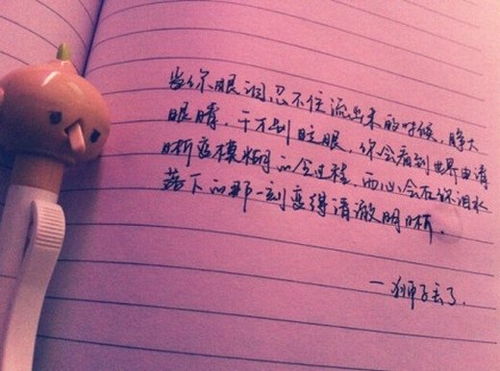 当你眼泪忍不住流出来的时候，睁大
眼睛，千万别眨眼，你会看到世界由清
晰变模糊的全过程，而心会在你泪水
落下的那一刻变得清澈明晰。
—狮子丢了.